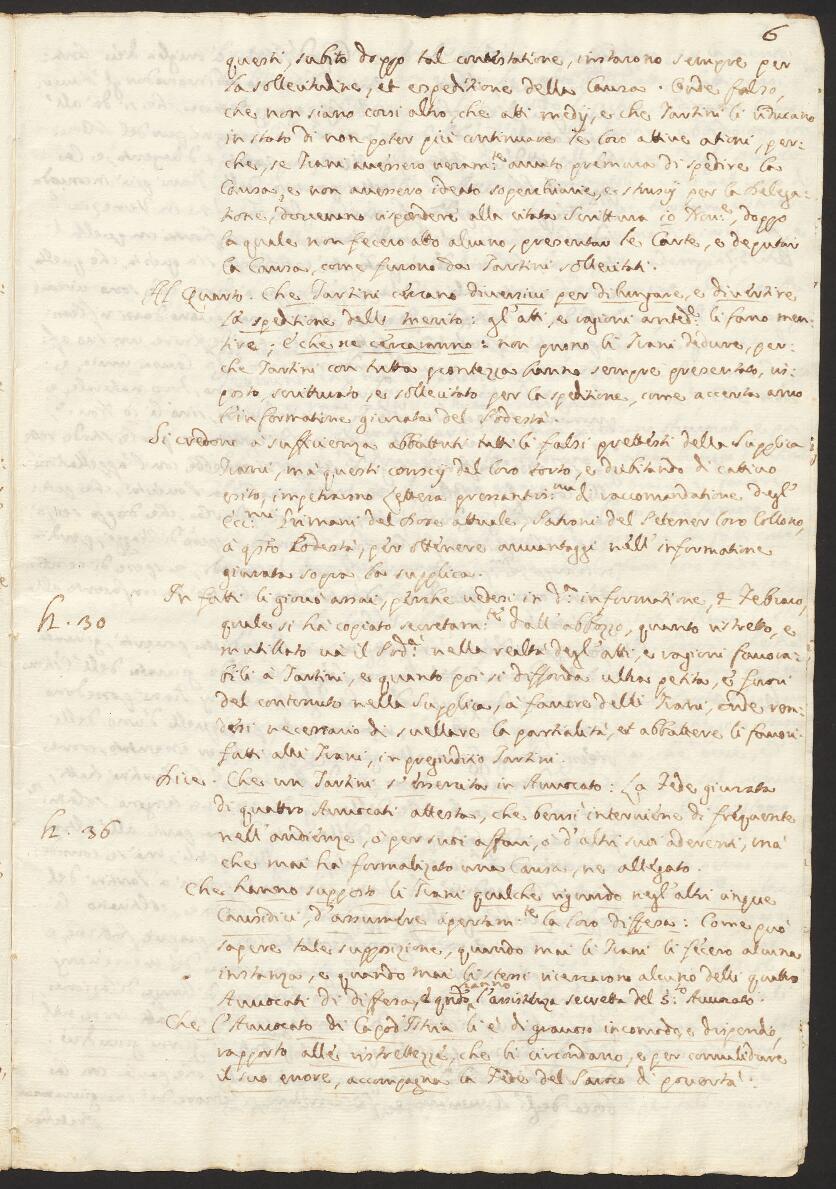 6
questi, subito doppo tal contestatione, instarono sempre per
la sollecitudine, et espeditione della Causa. Onde falso,
che non siano corsi altro, che atti medij, e che Tartini li riducano
in stato di non poter più continuare le loro attive ationi, per:
che, se Trani avessero veram:te avuto premura di spedire la
Causa, e non avessero ideato soperchiarie, e strusij per la Delega:
tione, dovevano rispondere alla citata Scrittura 10 , doppo
la quale non fecero atto alcuno, presentar le Carte, e deputar
la Causa, come furono da Tartini sollecitati.
Al Quarto. Che Tartini cercano diversivi per dilungare, e divertire
la speditione delli merito: gl'atti, e ragioni anted:i li fano men:
tire; E che ne cercaranno: non puono li Trani dedure, per:
che Tartini con tutta prontezza hanno sempre presentato, ris:
posto, scritturato, e sollecitato per la speditione, come accerta anco
l'informatione giurata del Podestà.
Si credono à sufficienza abbattuti tutti li falsi prettesti della Supplica
Trani, mà questi conscij del loro torto, e dubitando di cattivo
esito, impetrarono Lettera pressantiss:ma di raccomandatione degl'
Ecc:mi Grimani dal Dose attuale, Patroni del Setener loro Collono,
à qsto Podestà, per ottenere avvantaggi nell'informatione
giurata sopra la supplica.
h. 30
In fatti li giovò assai, perche vedesi in d:a informatione, 4 Febraro,
quale si hà copiato secretam:te dall'abbozzo, quanto ristretto, e
mutillato và il Pod:à nella realtà degl'atti, e ragioni favora:
bili à Tartini, e quanto poi si diffonda ultra petita, e fuori
del contenuto nella Supplica, à favore delli Trani, onde ren:
desi necessario di svellare la partialità, et abbattere li favori
fatti alli Trani, in pregiuditio Tartini.
Dice. Che un Tartini s'essercita in Avvocato: La Fede giurata
di quattro Avvocati attesta, che bensì interviene di frequente
h. 36
nell'audienze, ò per suoi affari, ò d'altri suoi aderenti, mà
che mai hà formalizato una Causa, ne allegato.
Che hanno supposto li Trani qualche riguardo negl'altri cinque
Causidici, d'assumere apertam:te la loro diffesa: Come può
sapere tale supposizione, quando mai li Trani li fecero alcuna
instanza, e quando mai li stessi ricercarono alcuno delli quattro
Avvocati di diffesa, è qndo hanno l'assistenza secretta del s:o Avvocato.
Che l'Avvocato di Capod'Istria li è di gravoso incomodo, e dispendio,
rapporto alle ristrettezze, che li circondano, e per convalidare
il suo errore, accompagna la Fede del Paroco di povertà: